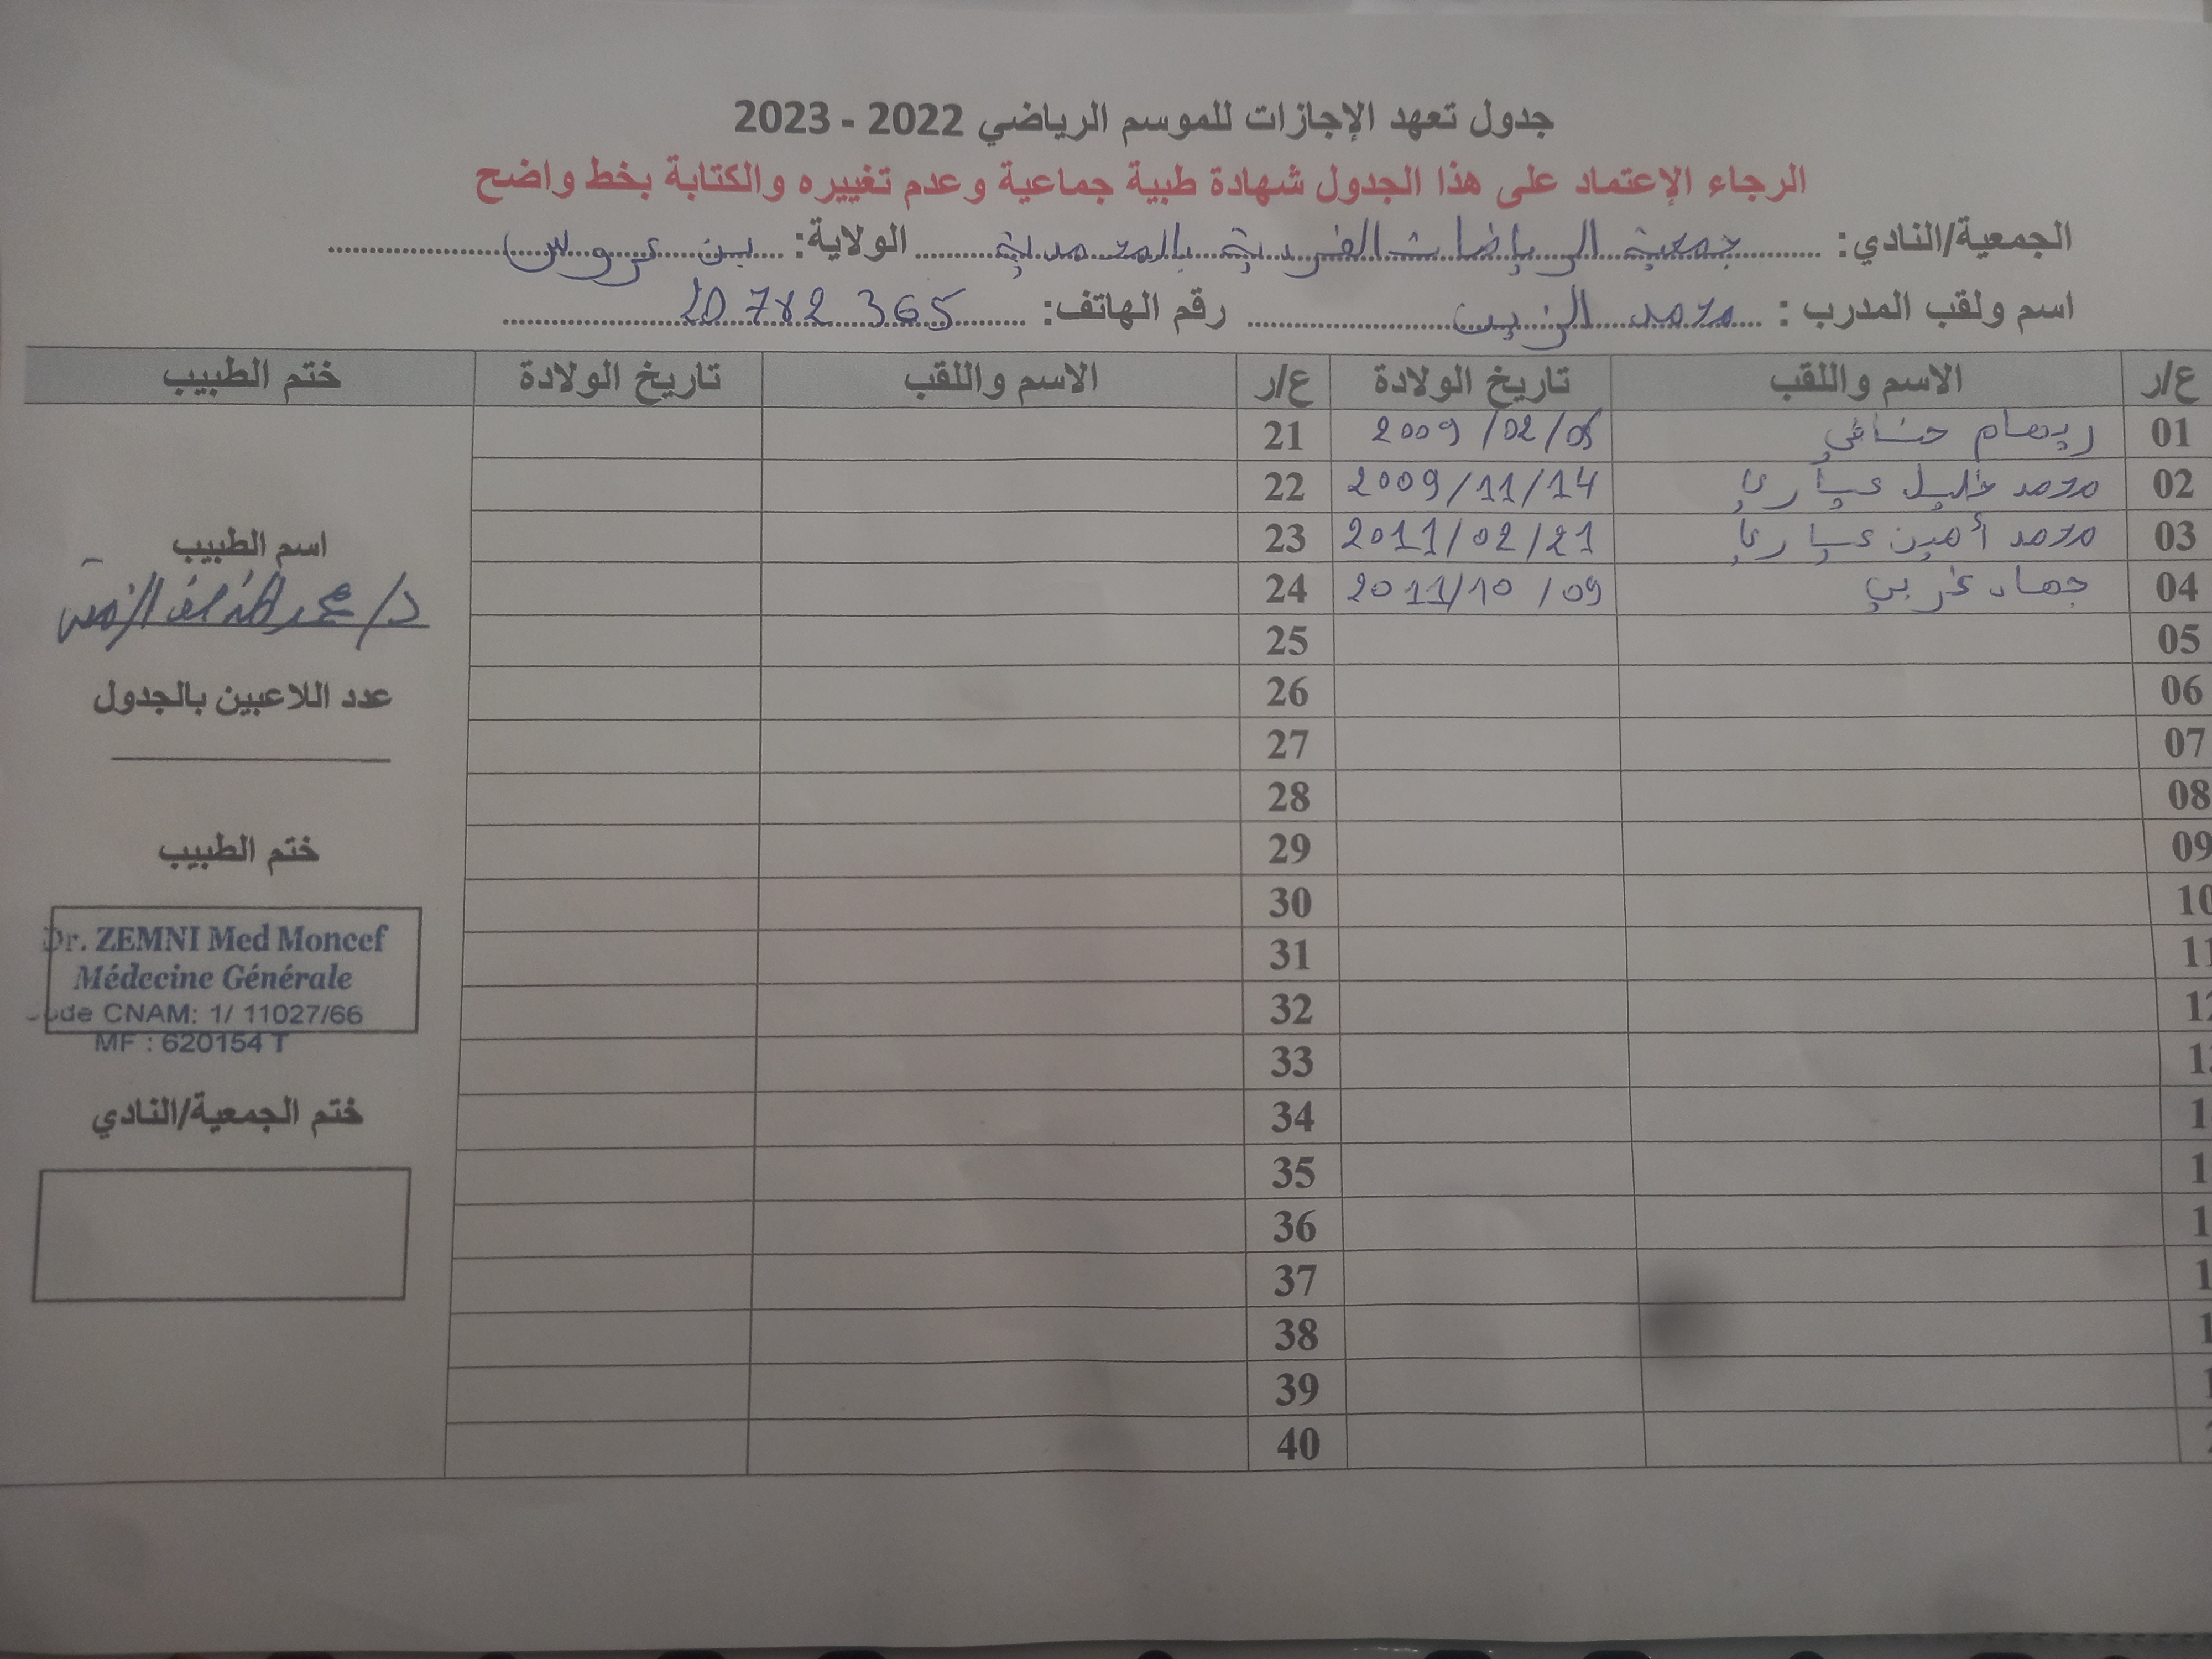 جدول تعهد الإجازات للموسم الرياضي 2022 - 2023
الرجاء الإعتماد على هذا الجدول شهادة طبية جماعية وعدم تغييره والكتابة بخط واضح
الجمعية/النادي: جمعية الرياضات الفردية بالمحمدية الولاية: بن عروس
اسم ولقب المدرب : محمد الزين رقم الهاتف: 20 782 365
ع/ر الاسم واللقب تاريخ الولادة ع/ر الاسم واللقب تاريخ الولادة ختم الطبيب
01 ريهام 2009/02/05 21
02 محمد خليل عياري 2009/11/14 22
03 محمد أمين عياري 2011/02/21 23
04 جهاد غربي 2011/10/09 24
05 25
06 26
07 27
08 28
09 29
10 30
11 31
32
33
34
35
36
37
38
39
40
اسم الطبيب
د/ محمد المنصف الزمني
عدد اللاعبين بالجدول
ختم الطبيب
Dr. ZEMNI Med Moncef
Médecine Générale
Code CNAM: 1/ 11027/66
MF : 620154 T
ختم الجمعية/النادي